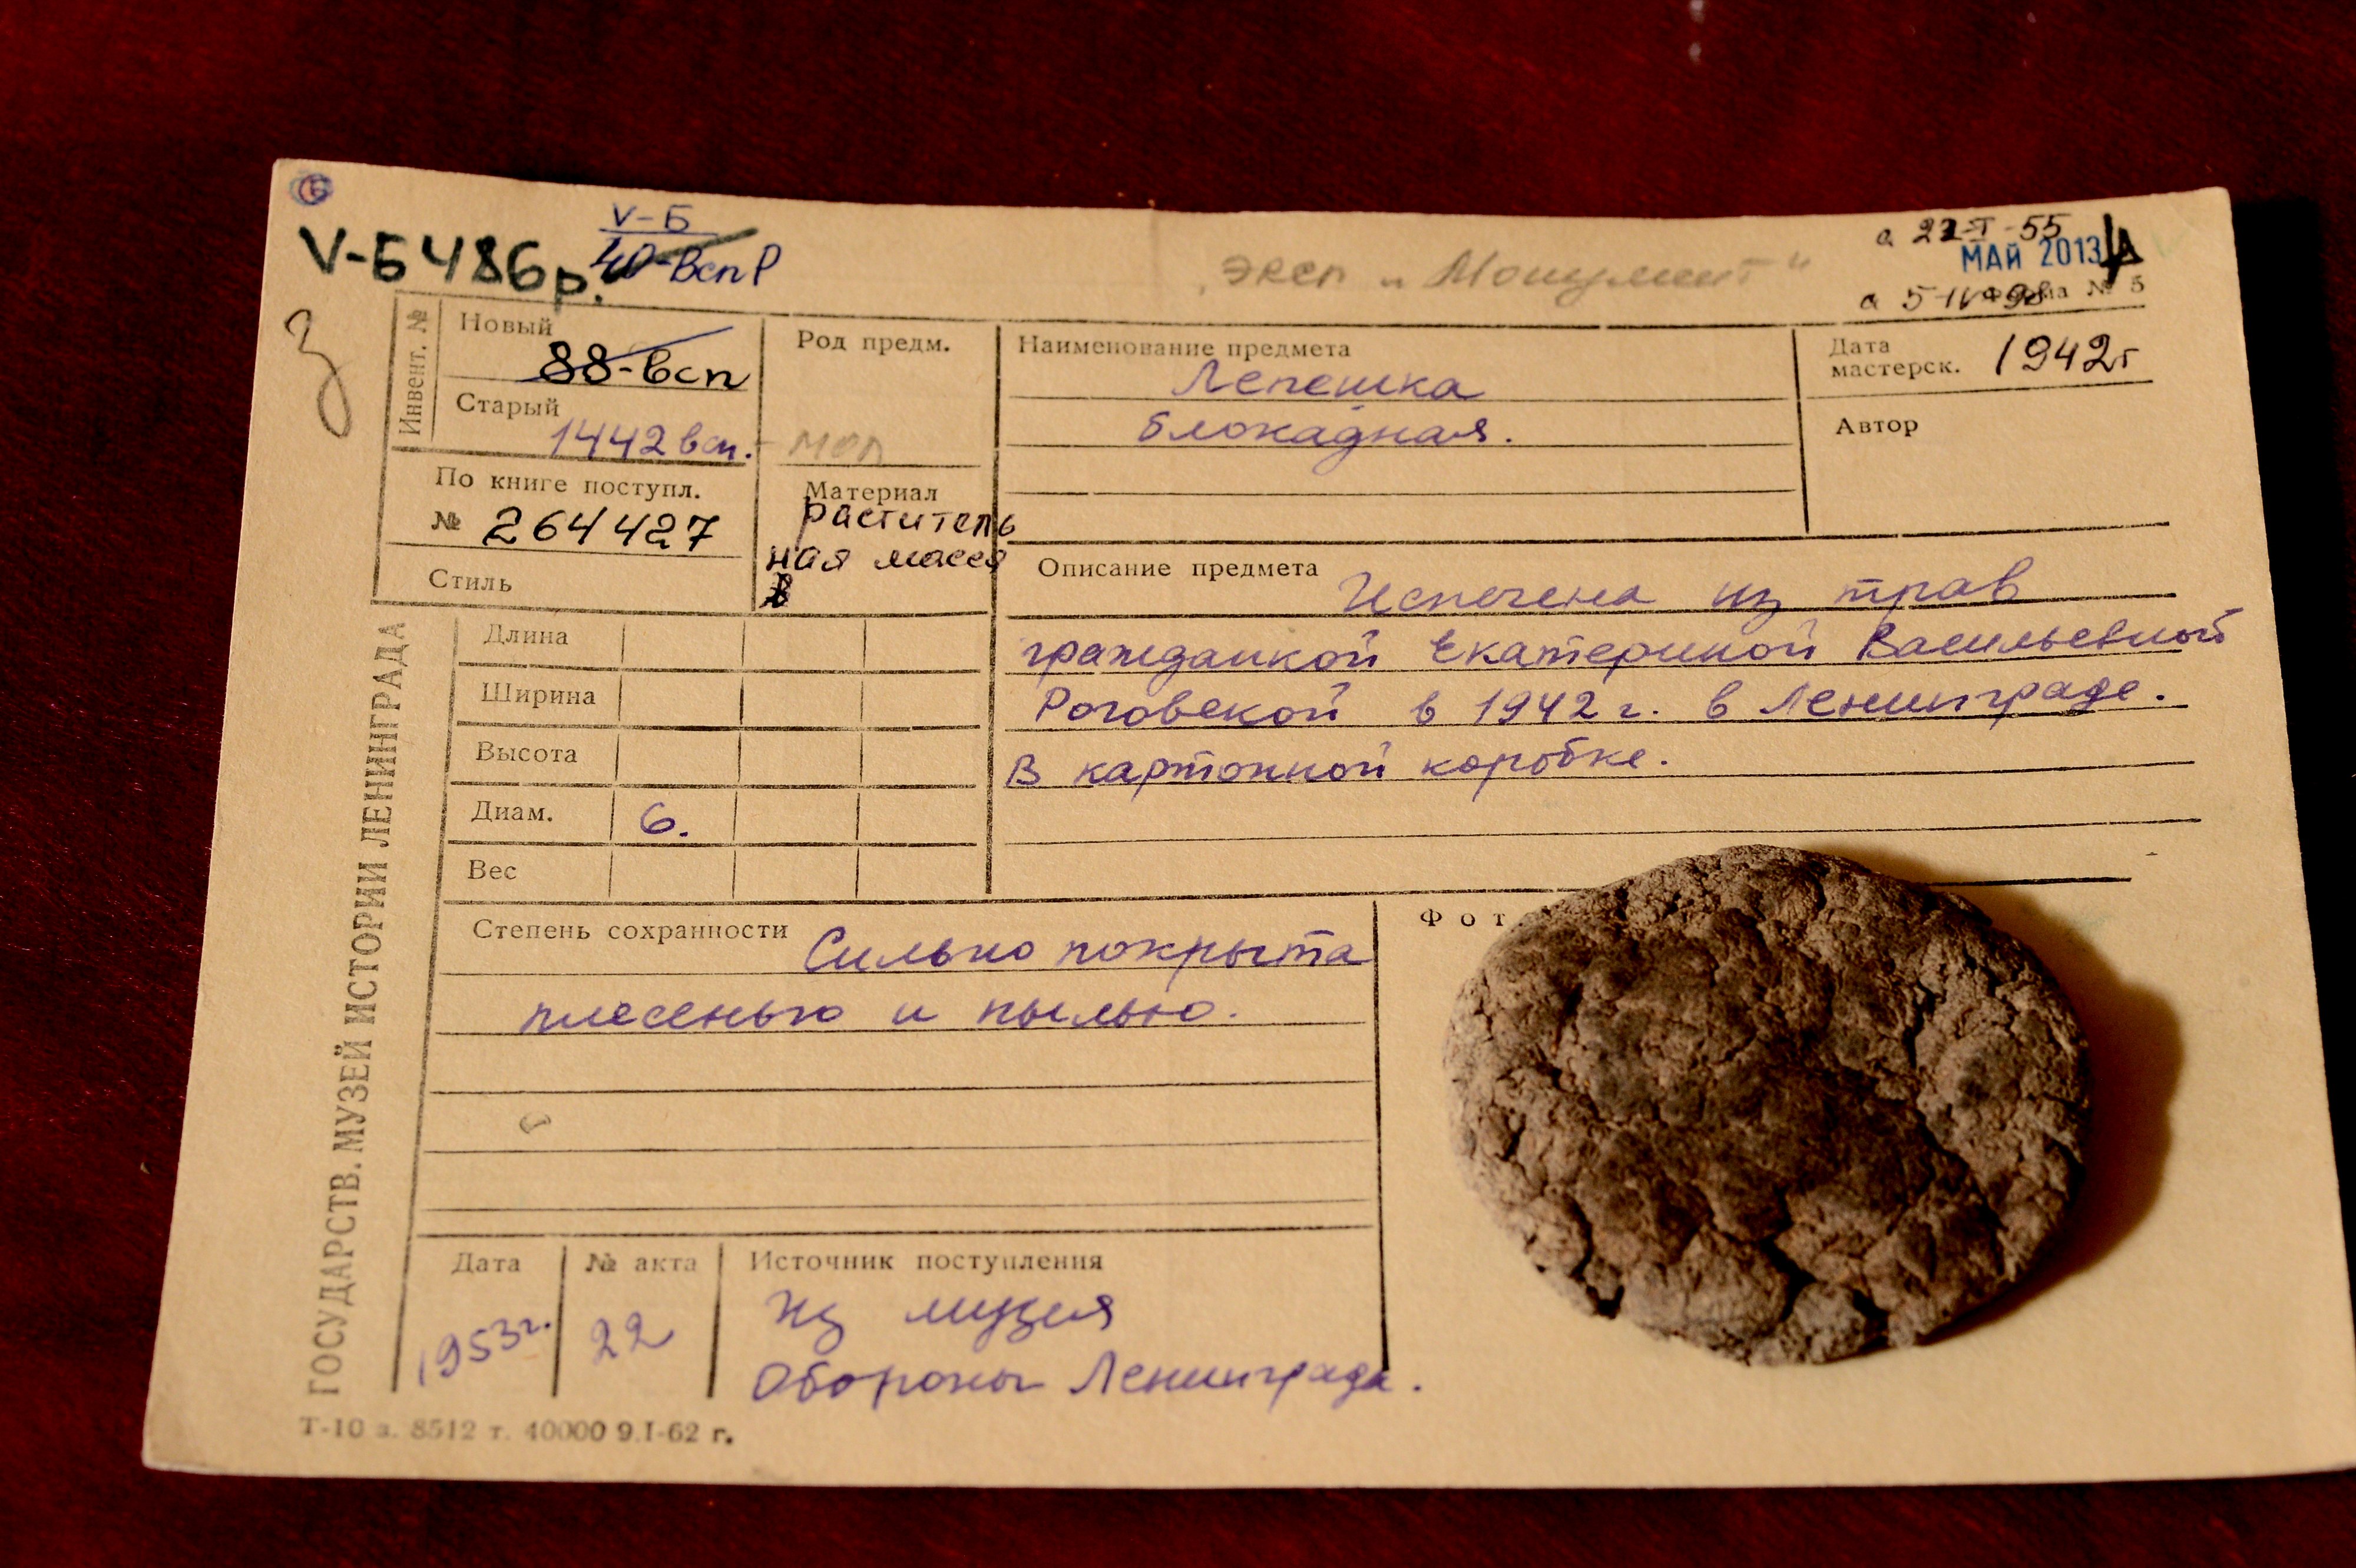 V-Б 486р.
V-Б
40-Всп Р
Эксп „Монумент"
а 22-I-55
МАЙ 2013
а 5-IV-98
Форма № 5
Инвент. №
Новый
88-всп
Старый
1442 всп.
По книге поступл.
№ 264427
Стиль
Род предм.
Материал
раститель
ная масса
Наименование предмета
Лепешка
блокадная.
Дата
мастерск. 1942г
Автор
Описание предмета Испечена из трав
гражданкой Екатериной Васильевной
Роговской в 1942 г. в Ленинграде.
В картонной коробке.
Длина
Ширина
Высота
Диам. 6.
Вес
ГОСУДАРСТВ. МУЗЕЙ ИСТОРИИ ЛЕНИНГРАДА
Степень сохранности Сильно покрыта
плесенью и пылью.
Фот
Дата
1953г.
№ акта
22
Источник поступления
Из музея
Обороны Ленинграда.
Т-10 з. 8512 т. 40000 9.I-62 г.